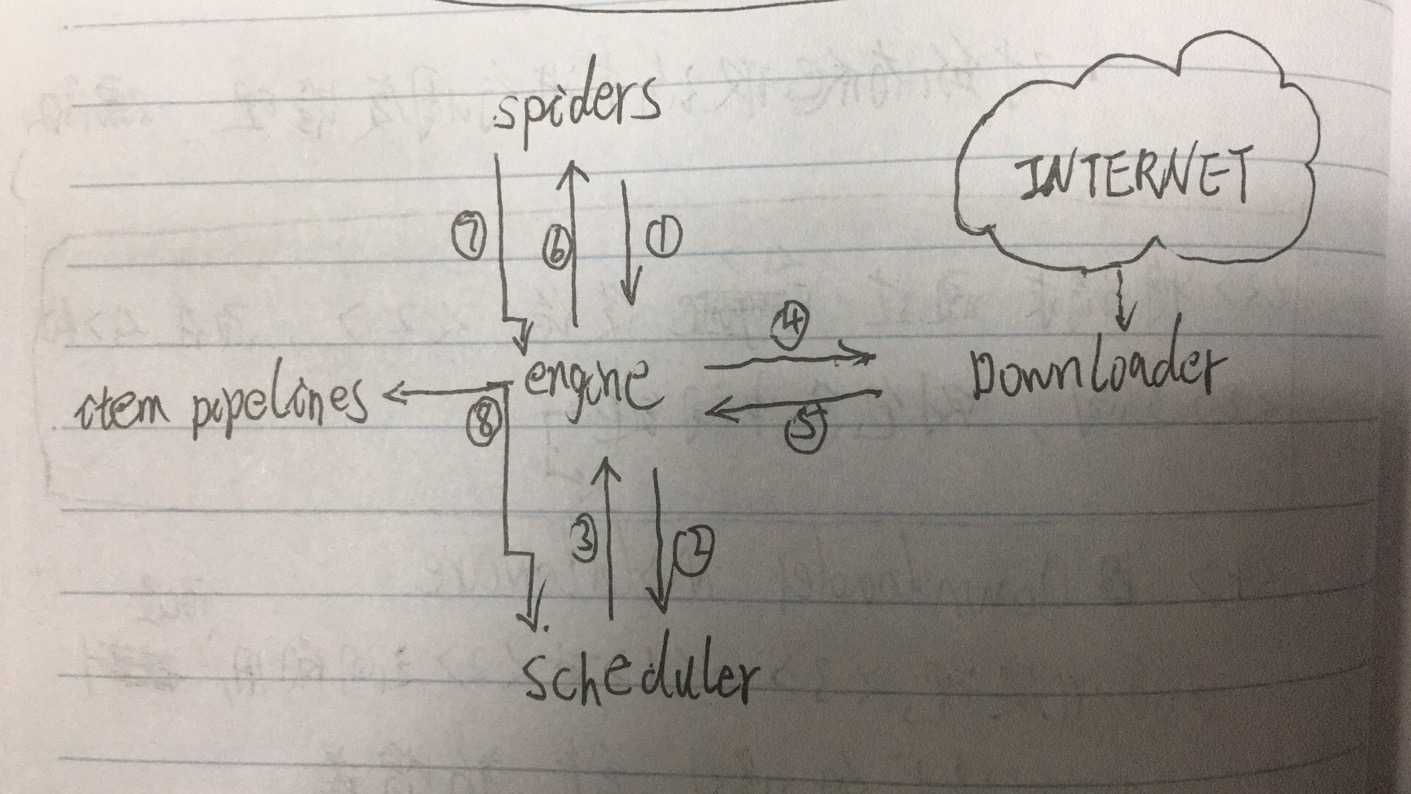 spiders
INTERNET
⑦ ⑥ ①
④
engine
Downloader
item pipelines
⑧
⑤
③ ②
scheduler